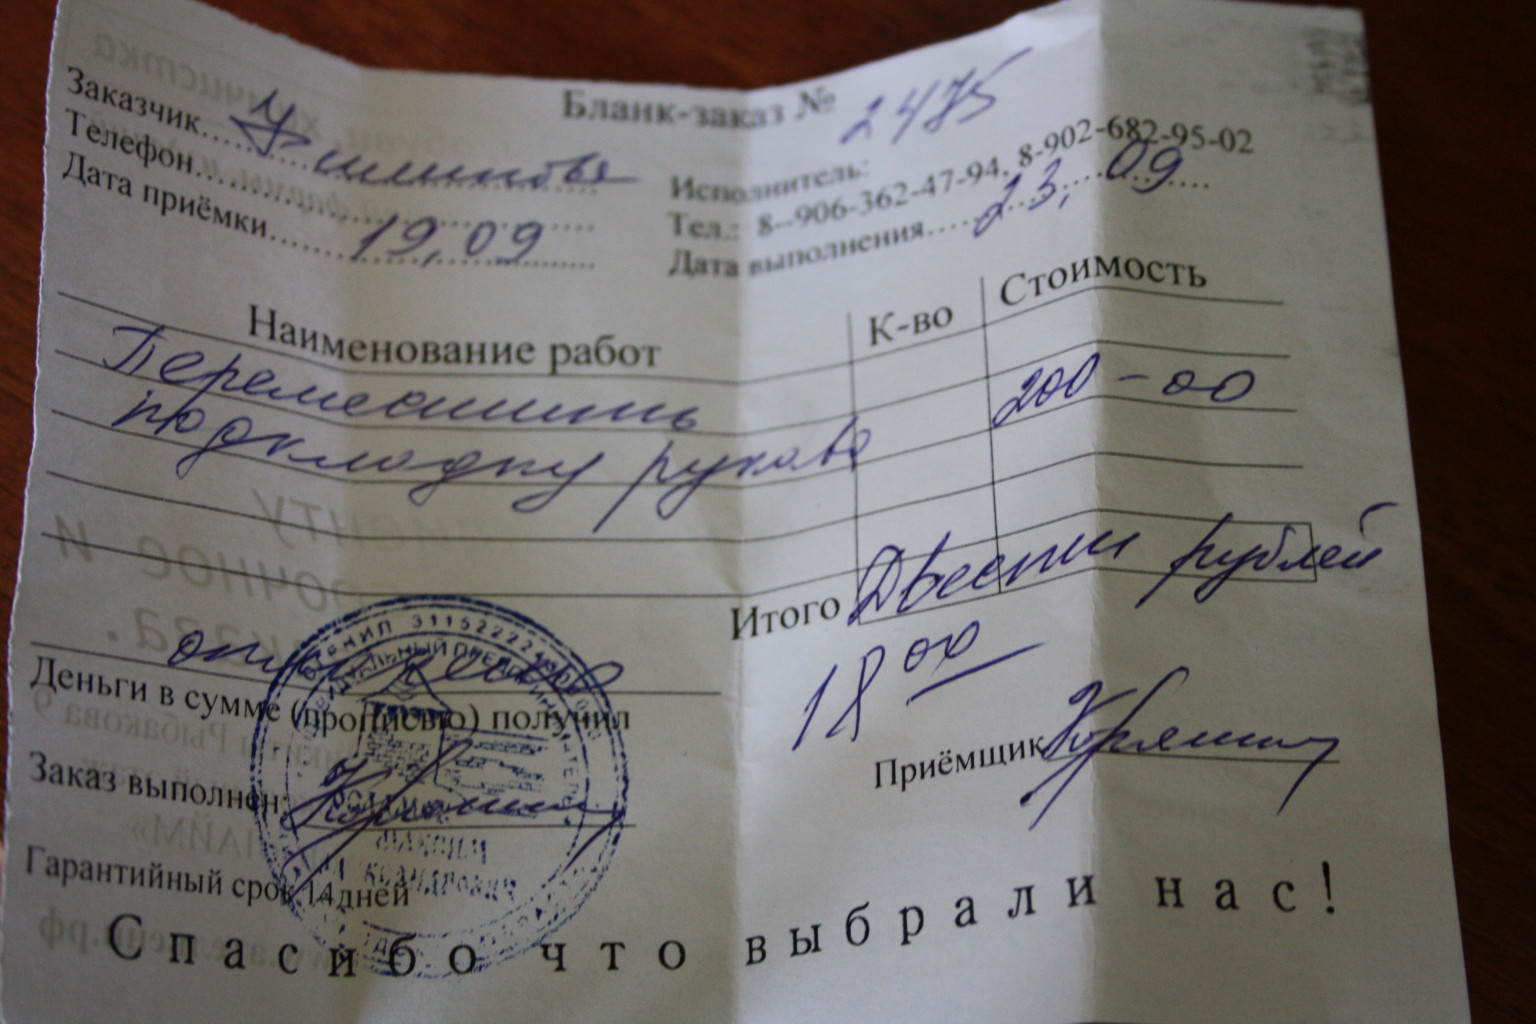 Бланк-заказ № 2475
Заказчик
Телефон
Дата приёмки 19,09
Исполнитель:
Тел.: 8--906-362-47-94, 8-902-682-95-02
Дата выполнения 23,09
Наименование работ К-во Стоимость
200-00
подкладку рукава
Итого Двести рублей
18 00
Деньги в сумме (прописью) получил
Приёмщик
Заказ выполнен:
Гарантийный срок 14дней
Спасибо что выбрали нас!